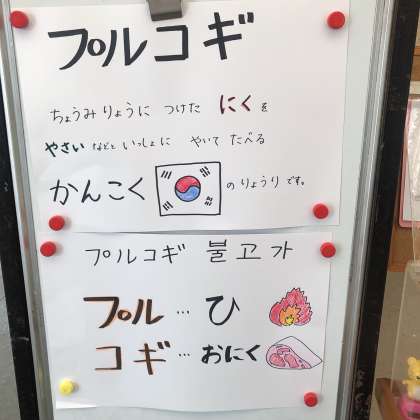 プルコギ
ちょうみりょうに つけた にくを
やさい などと いっしょに やいて たべる
かんこく のりょうりです。
プルコギ 불고가
プル…ひ
コギ…おにく